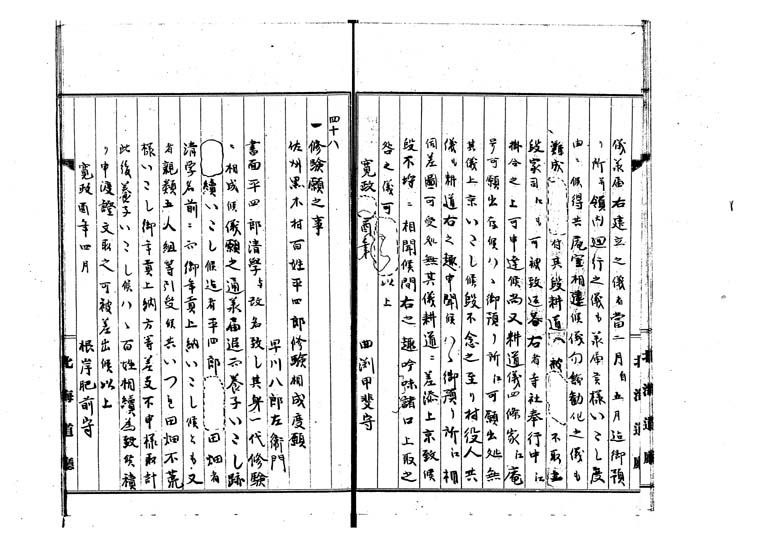 儀承届右建立之儀者當二月ゟ五月迄御預
り所并領内廻行之儀も承届呉様いたし度
由ニ候得共庵室相建候儀勿論勧化之儀も
難成 付其段耕道へ被 不取立
段家司江も可被致返答右者寺社奉行中江
掛合之上可申達候尚又耕道儀四條家江庵
号可願出存候ハヽ御預り所江可願出処無
其儀上京いたし候段不念之至り村役人共
儀も耕道右之趣申聞候ハヽ御預り所江相
伺差圖可受処無其儀耕道ニ差添上京致候
段不埒ニ相聞候間右之趣吟味詰口上取之
咎之儀可 以上
寛政 酉年
四渕甲斐守
四十八
一修験願之事
佐州黒木村百姓平四郎修験相成度願
早川八郎左衛門
書面平四郎清学与改名致し其身一代修験
ニ相成候儀願之通承届追而養子いたし跡
續いたし候迄者平四郎 田畑者
清学名前ニ而御年貢上納いたし候とも又
者親類五人組等引受候共いつれ田畑不荒
様いたし御年貢上納方等差支不申様取計
此後養子いたし候ハヽ百姓相續為致候積
り申渡證文取之可被差出候以上
寛政酉年四月
根岸肥前守
北海道廳
北海道廳